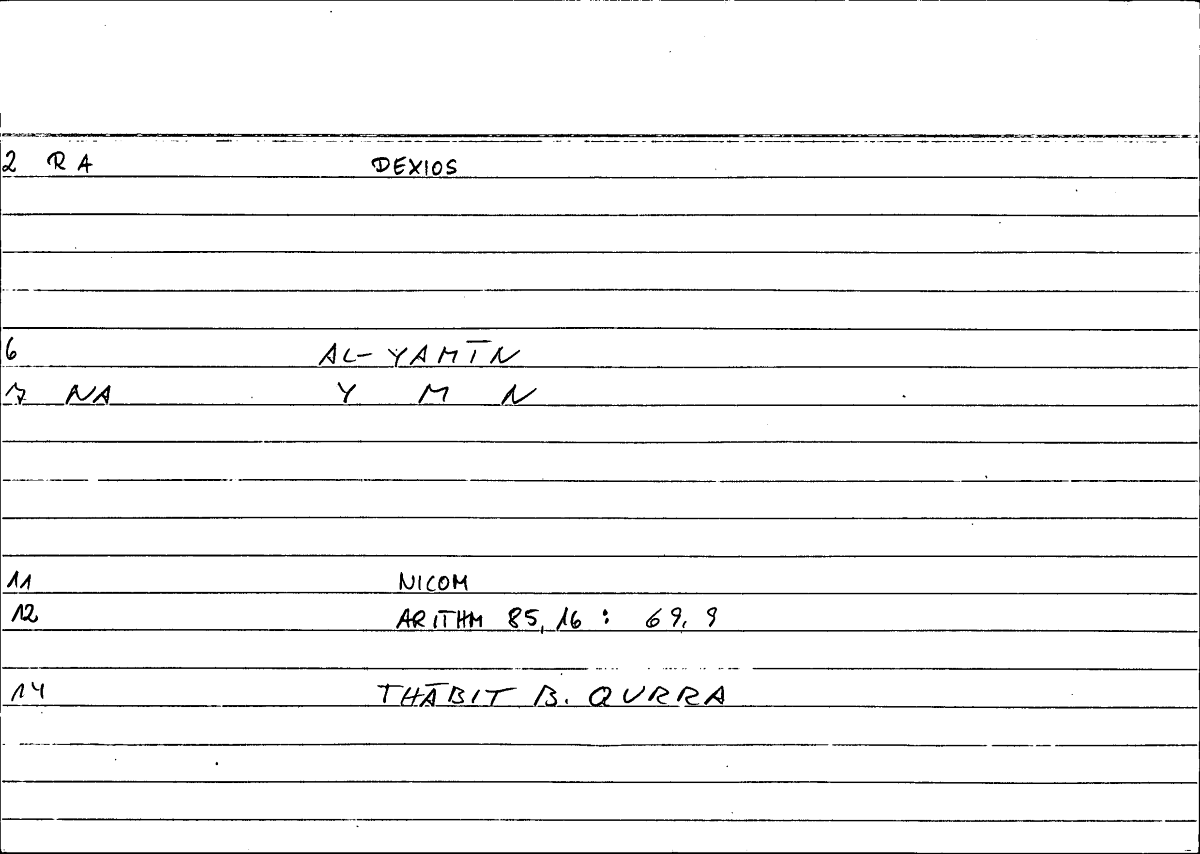 2 RA DEXIOS
6 AL-YAMĪN
7 NA Y M N
11 NICOM
12 ARITHM 85,16 : 69,9
14 THĀBIT B. QURRA